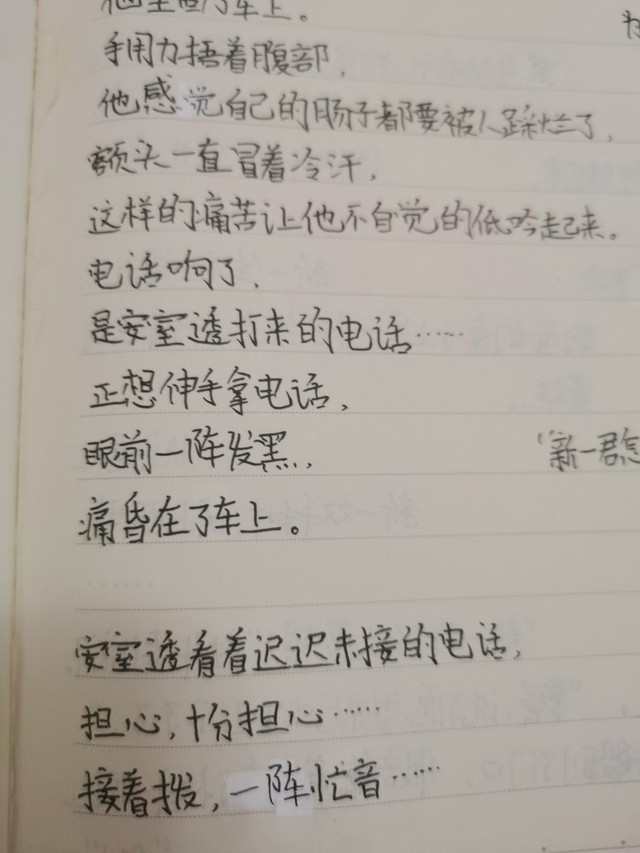 他坐回了车上。
手用力捂着腹部，
他感觉自己的肠子都要被人踩烂了，
额头一直冒着冷汗，
这样的痛苦让他不自觉的低吟起来。
电话响了，
是安室透打来的电话……
正想伸手拿电话，
眼前一阵发黑，
"新一君怎
痛昏在了车上。
……
安室透看着迟迟未接的电话，
担心，十分担心……
接着拨，一阵忙音……